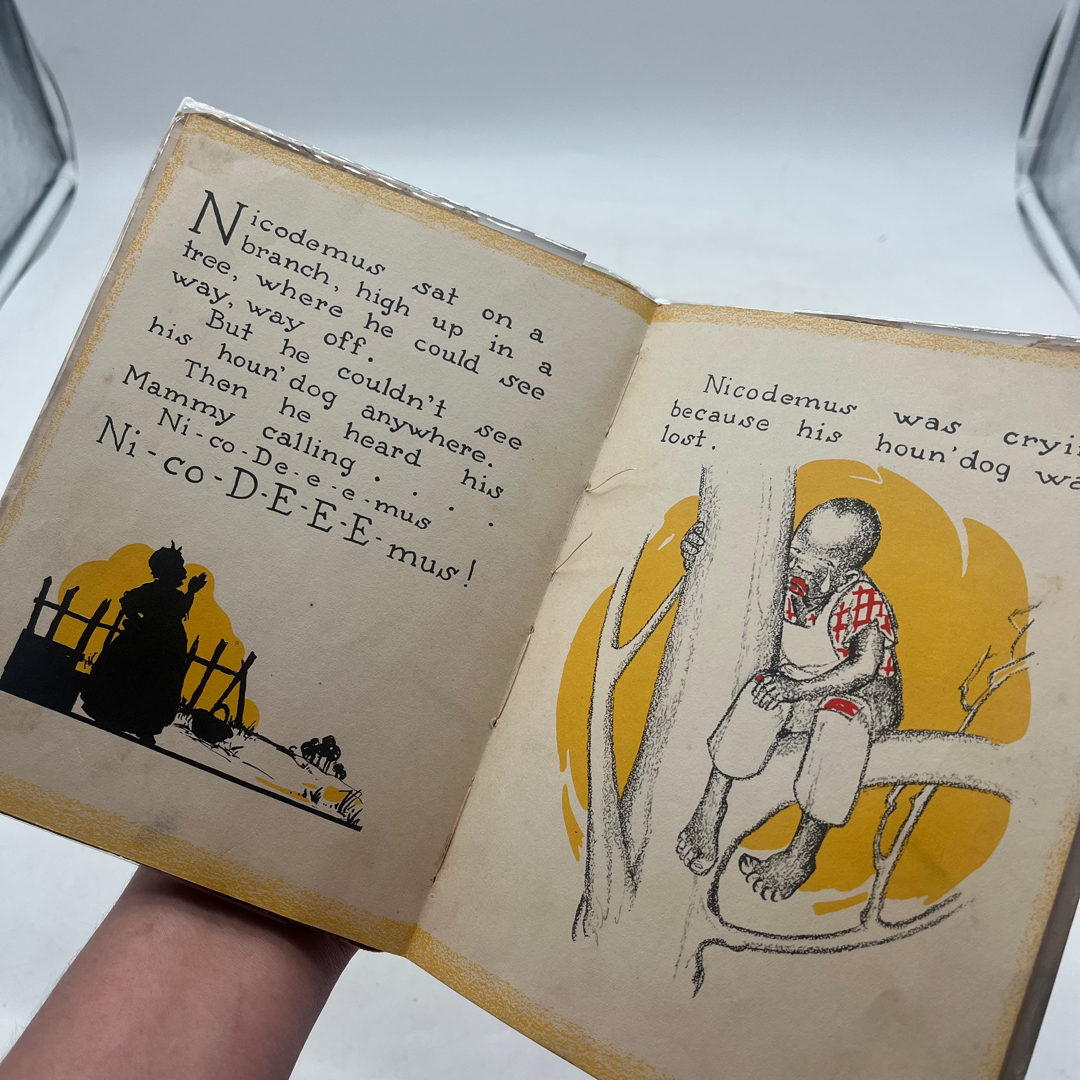 Nicodemus sat on a
branch, high up in a
tree, where he could see
way, way off.
But he couldn't see
his houn'dog anywhere.
Then he heard his
Mammy calling . . . .
Ni-co-De-e-e-mus
Ni-co-D-E-E-E-mus!
Nicodemus was cryi
because his houn'dog wa
lost.